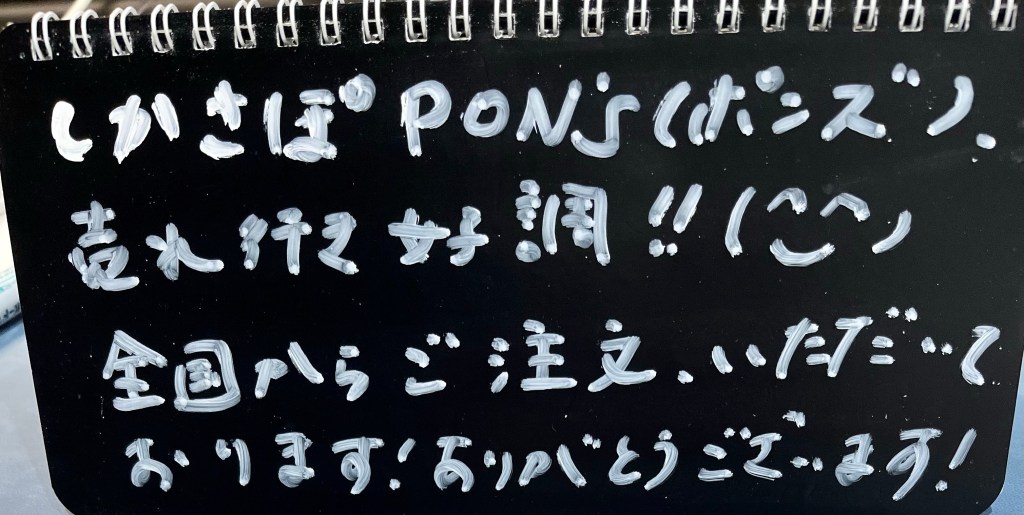 しかさぽPON's(ポンズ)、
売れ行き好調!!(^‿^)
全国からご注文、いただいて
おります!ありがとうございます!